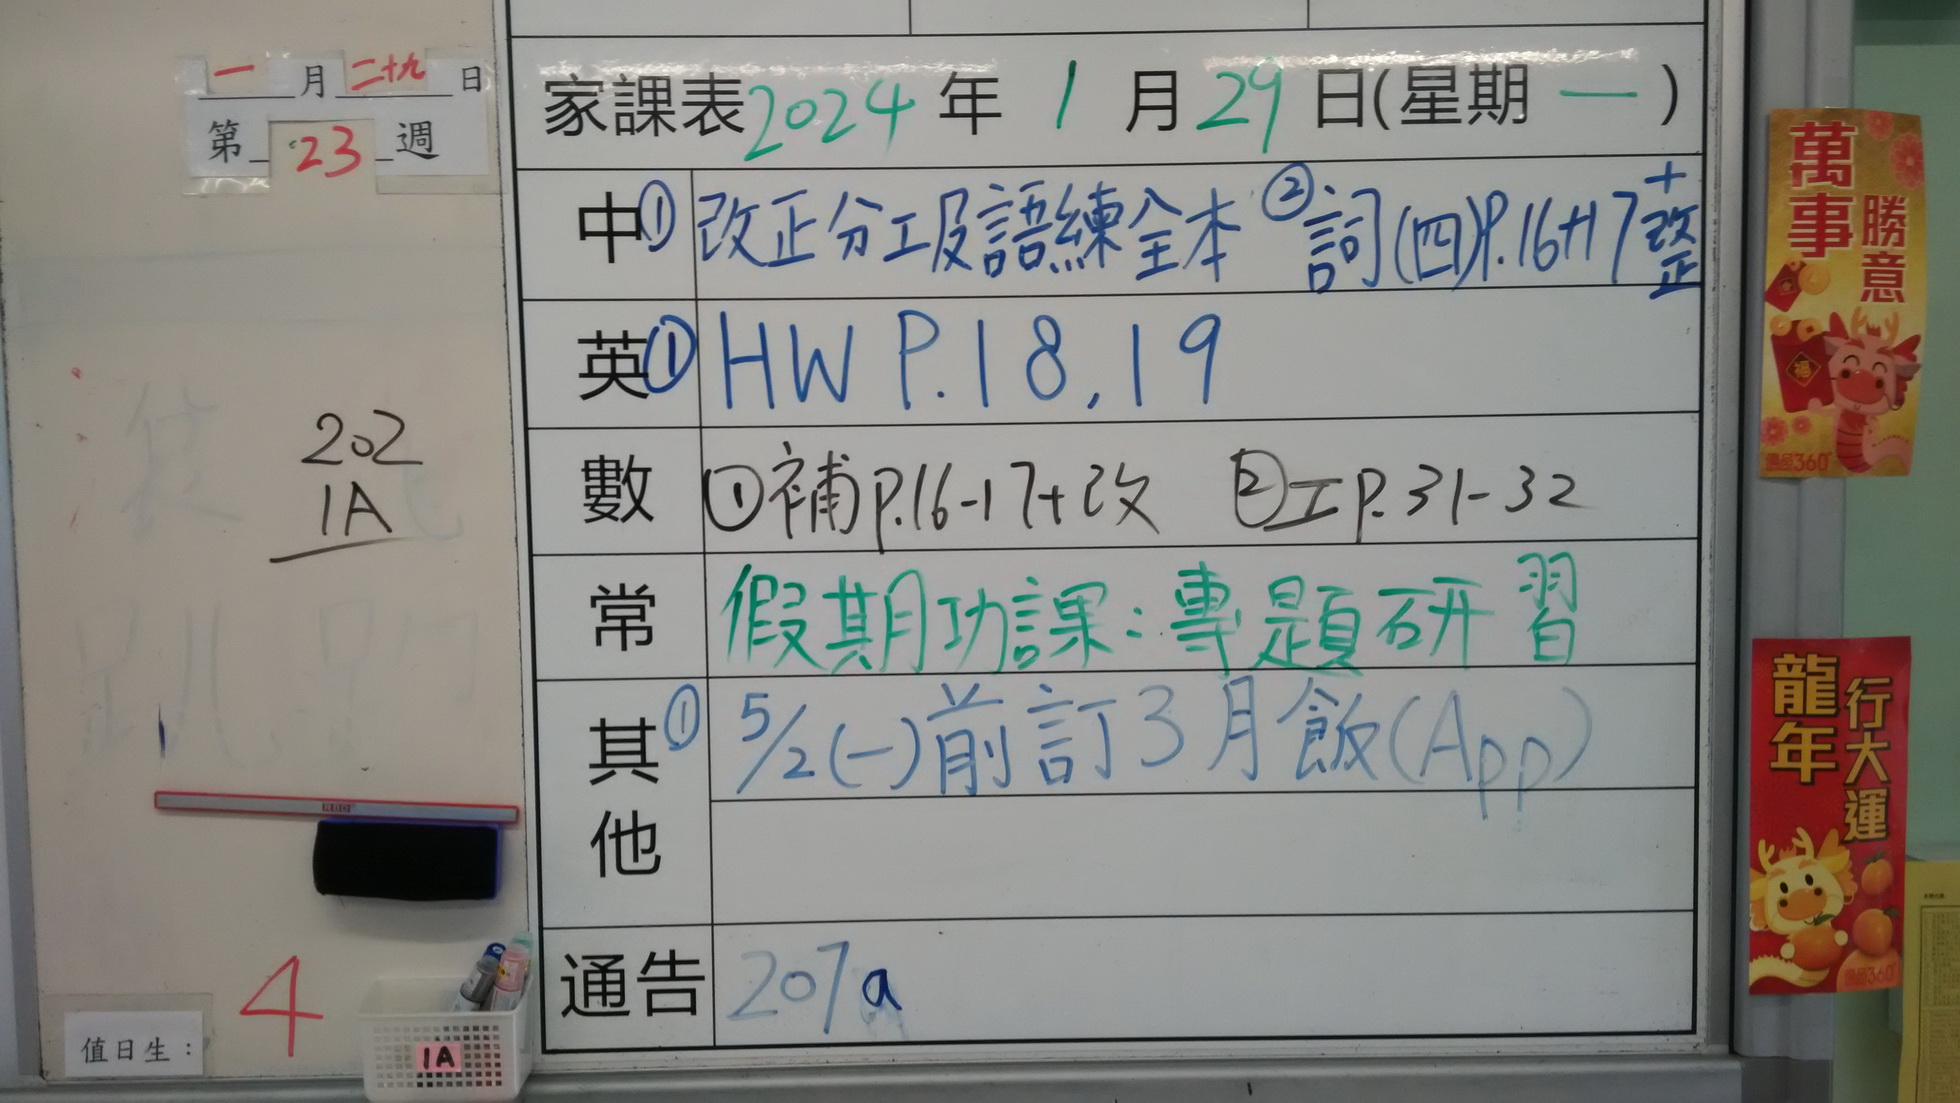 一月二十九日
第23週
202
1A
4
值日生：
1A
家課表2024年1月29日(星期一)
中 ①改正分工段語練全本 ②詞(四)P.16+17+改正
英 ①HW P.18,19
數 ①補P.16-17+改 ②工P.31-32
常 假期功課：專題研習
其他 ①5/2(一)前訂3月飯(App)
通告 207a
萬事勝意
福
龍年行大運